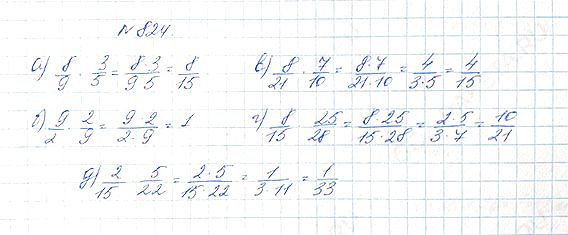 № 824.
а) 8/9 · 3/5 = 8·3/9·5 = 8/15 в) 8/21 · 7/10 = 8·7/21·10 = 4/3·5 = 4/15
б) 9/2 · 2/9 = 9·2/2·9 = 1 г) 8/15 25/28 = 8·25/15·28 = 2·5/3·7 = 10/21
д) 2/15 5/22 = 2·5/15·22 = 1/3·11 = 1/33